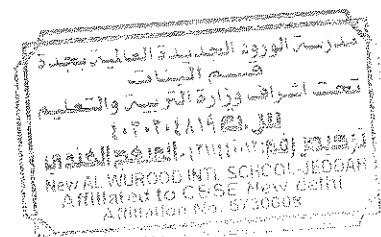 مدرسة الورود الجديدة العالمية بجدة
قسم البنات
تحت اشراف وزارة التربية والتعليم
New AL WUROOD INTL SCHOOL-JEDDAH
Affiliated to CBSE New delhi
Affiliation No. 5730008